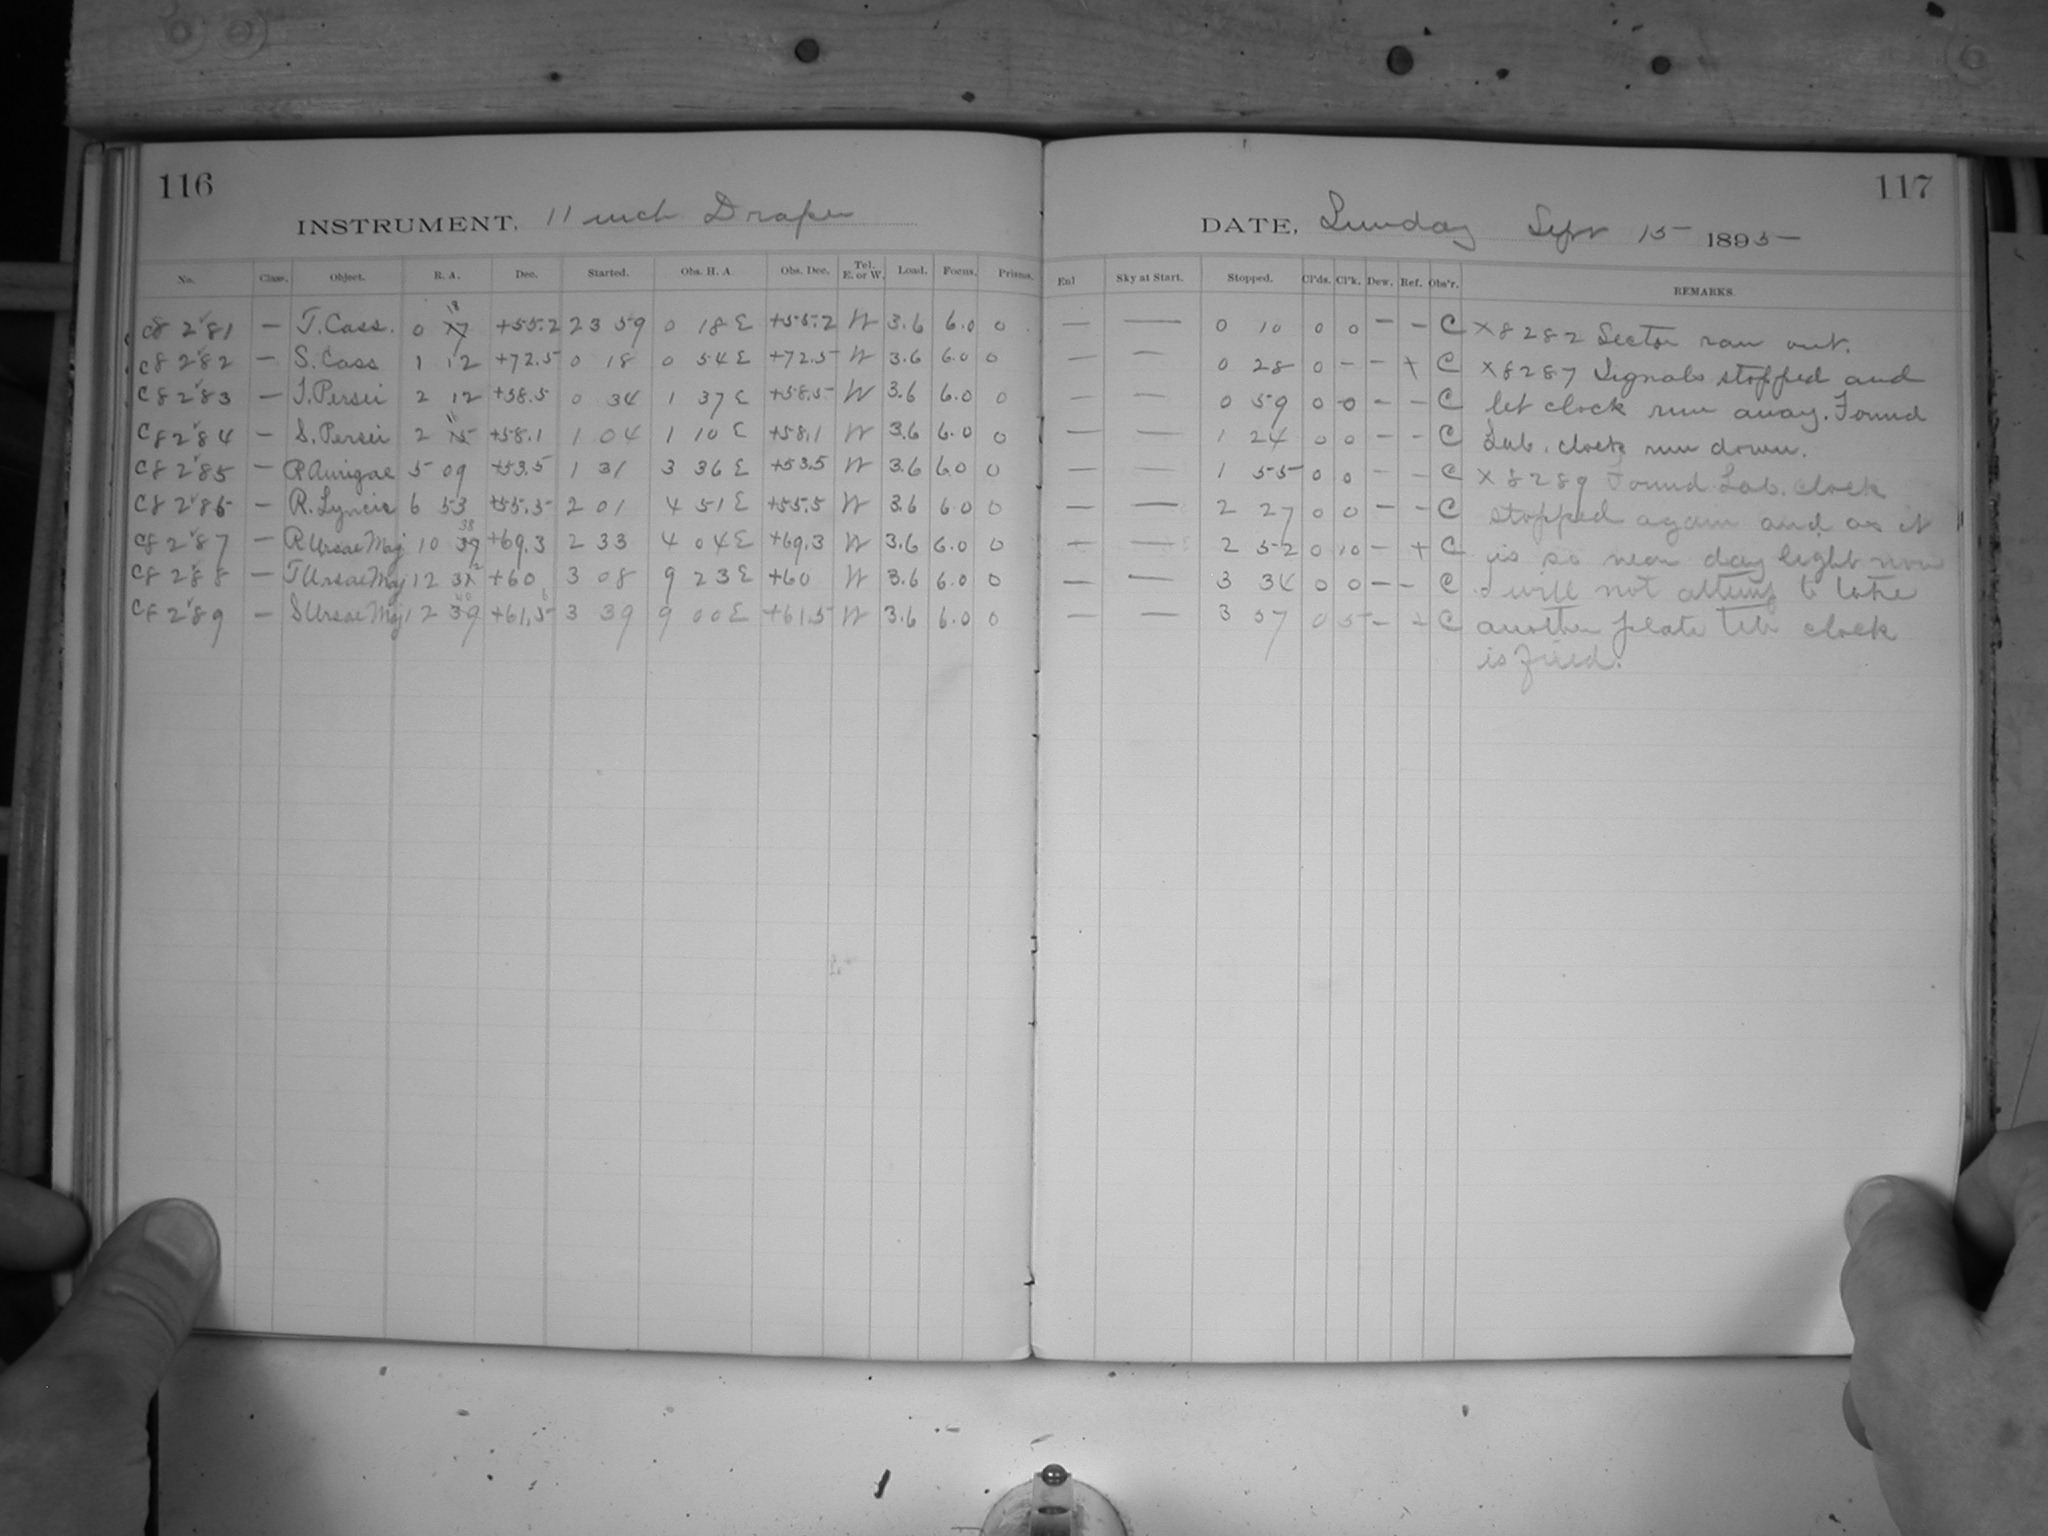 116
INSTRUMENT, 11 inch Draper
No. Class. Object. R. A. Dec. Started. Obs. H. A. Obs. Dec. Tel. E. or W. Load. Focus. Prisms.
C8281 — T. Cass. 0 17 18 +55.2 23 59 0 18 E +55.2 W 3.6 6.0 0
C8282 — S. Cass 1 12 +72.5 0 18 0 54 E +72.5 W 3.6 6.0 0
C8283 — T. Persei 2 12 +58.5 0 34 1 37 E +58.5 W 3.6 6.0 0
C8284 — S. Persei 2 15 +58.1 1 04 1 10 E +58.1 W 3.6 6.0 0
C8285 — R Aurigae 5 09 +53.5 1 31 3 36 E +53.5 W 3.6 6.0 0
C8286 — R. Lyncis 6 53 +55.5 2 01 4 51 E +55.5 W 3.6 6.0 0
C8287 — R Ursae Maj 10 37 38 +69.3 2 33 4 04 E +69.3 W 3.6 6.0 0
C8288 — T Ursae Maj 12 32 +60 3 08 9 23 E +60 W 3.6 6.0 0
C8289 — S Ursae Maj 12 39 40 +61.5 3 39 9 00 E +61.5 W 3.6 6.0 0
117
DATE, Sunday Sept 15 1895
Enl Sky at Start. Stopped. Cl'ds. Cl'k. Dew. Ref. Obs'r. REMARKS.
— — 0 10 0 0 — — C X8282 Sector ran out.
— — 0 28 0 — — + C X8287 Signals stopped and
— — 0 59 0 0 — — C let clock run away. Found
— — 1 24 0 0 — — C Lab. clock run down.
— — 1 55 0 0 — — C X8289 Found Lab. clock
— — 2 27 0 0 — — C stopped again and as it
— — 2 52 0 10 — + C is so near day light now
— — 3 34 0 0 — — C I will not attempt to take
— — 3 57 0 5 — C another plate till clock
is fixed.